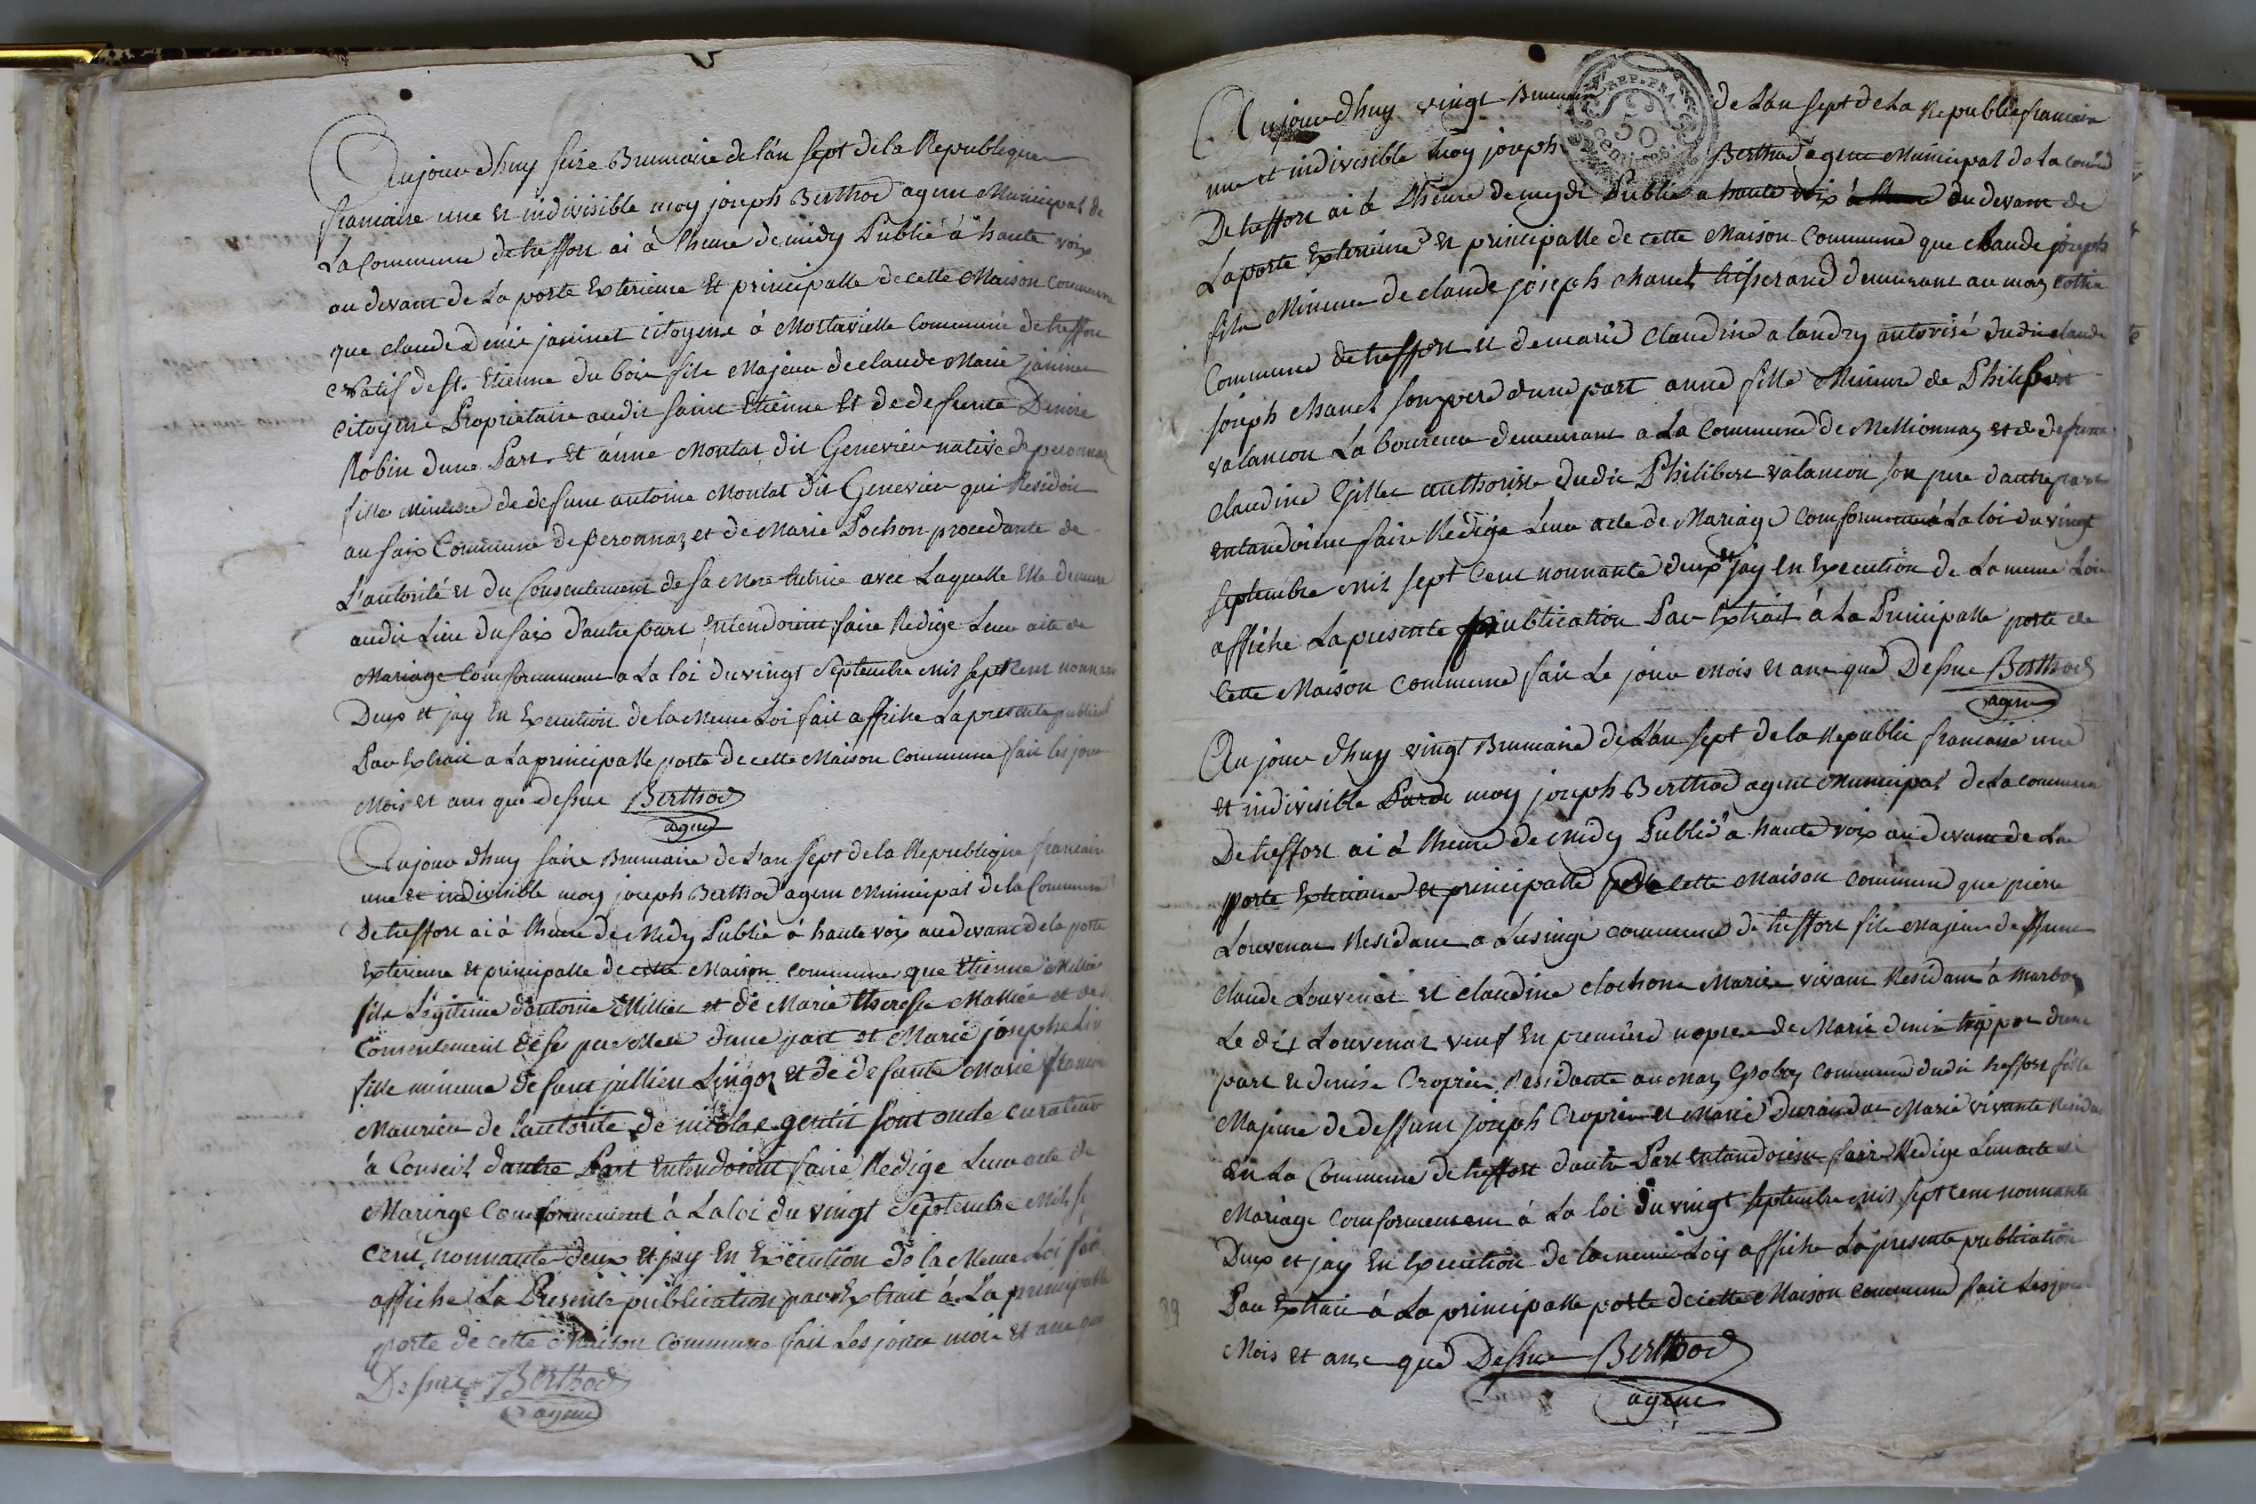 Aujourdhuy seize Brumaire de l'an sept de la Republique
francaise une et indivisible moy joseph Berthod agent Municipal de
La Commune de treffort ai à lheure de midy Publié à haute voix
au devant de La porte Exterieure Et principalle de cette Maison Commune
que claude Denis janinet citoyens à Montarielle Commune de treffort
Natif de st. Etienne du bois fils Majeur de claude Marie janinet
citoyens Propriétaire audit saint Etienne Et de defunte Denise
Robin dune Part. Et anne Montat dit Genevier native de peronnaz
fille Mineure de defunt antoine Montat dit Genevier qui Residoit
au saix Commune de peronnaz et de Marie Pochon procedante de
L'autorité et du Consentement de sa Mere tutrice avec Laquelle Elle demeure
audit Lieu du saix d'autre part Entendoient faire Redige Leur acte de
Mariage Comformement a La loi du vingt Septembre mil sept cent nonnante
Deux et jay En Execution de la Meme Loi fait affiche La presente publication
Par Extrait a La principalle porte de cette Maison Commune fait les jour
Mois et ans que Dessue Berthod
agent
Aujourdhuy saize Brumaire de L'an sept de la Republique francaise
une et indivisible moy joseph Berthod agent Municipal de la Commune
De treffort ai à lheure de Midy Publié à haute voix au devant de la porte
Exterieure Et principalle de cette Maison commune que Etienne Millet
fils Légitime d'antoine Millet et de Marie therese Mallié et de
Consentement de se pere Mere dune part et Marie josephe Lin
fille mineure defunt jullien Lingoz et de defante Marie francoise
Maurier de l'autorité de nicolas gentit sont oncle curateur
à Conseil dautre Part Entendoient faire Redige Leur acte de
Mariage Comformement à La loi du vingt Septembre Mil sept
Cent nonnante deux et jay En Execution de la Meme Loi fait
affiche La Présente publication par Extrait à La principalle
porte de cette Maison Commune fait Les jour mois et ans que
Dessue Berthod
agent
Aujourdhuy vingt Brumaire de L'an sept de La Republie francaise
une et indivisible moy joseph Berthod agent Municipal de La commune
De treffort ai à L'heure de mydi Publié a haute voix au devant de
La porte Exterieure Et principalle de cette Maison Commune que claude joseph
fils Mineur de claude joseph chanel tisserand demeurant au maz cottin
Commune de treffort et de marie Claudine alandry autorisé dudit claude
joseph chanel son pere dune part anne fille Mineure de Philibert
valancon Laboureur demeurant a La Commune de Mellionnaz et de defunte
claudine Gillet authorisse dudit Philibert valancon son pere d'autre part
entandoient faire Rédige Leur acte de Mariage Comformement à La loi du vingt
septembre mil sept Cent nonnante deux et jay en Execution de La meme Loi
affiche La presente publication Par Extrait à La Principalle porte de
Cette Maison Commune fait Le jour Mois et ans que Dessue Berthod
agent
Aujourdhuy vingt Brumaire de L'an sept de la Republie francaise une
et indivisible moy joseph Berthod agent Municipal de La commune
De treffort ai à lheure de Midy Publié à haute voix au devant de La
porte Exterieure et principalle de cette Maison Commune que pierre
Louvenat Residant a Lusinge commune de treffort fils Majeur deffunt
claude Louvenat et claudine clochone Mariée vivant Residant à marboz
Le dit Louvenat veuf En premiere nopse de Marie denis trippoz dune
part et denise Cropier Residante au Maz Groboz Commune dudit treffort fille
Majeure de deffunt joseph Cropier et Marie durandat Marie vivante Residante
En La Commune de treffort dautre Part entandoient faire Redige Leur acte de
Mariage Comformement à La loi du vingt septembre mil sept cent nonnante
Deux et jay En Execution de la meme Loiy affiche La presente publication
Par Extrait à La principalle porte de cette Maison Commune fait Les jour
Mois et ans que Dessue Berthod
agent
REP. FRA.
50
Centimes
39